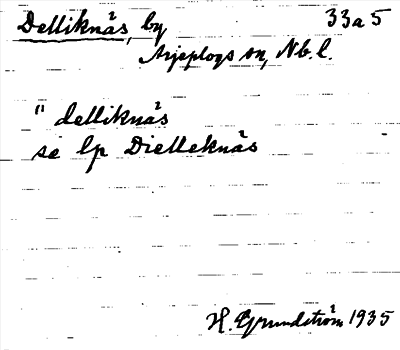 Delliknäs, by 33a5
Arjeplogs sn, Nb.l.
" delliknäs
se lp Dielleknäs
H. Grundström 1935